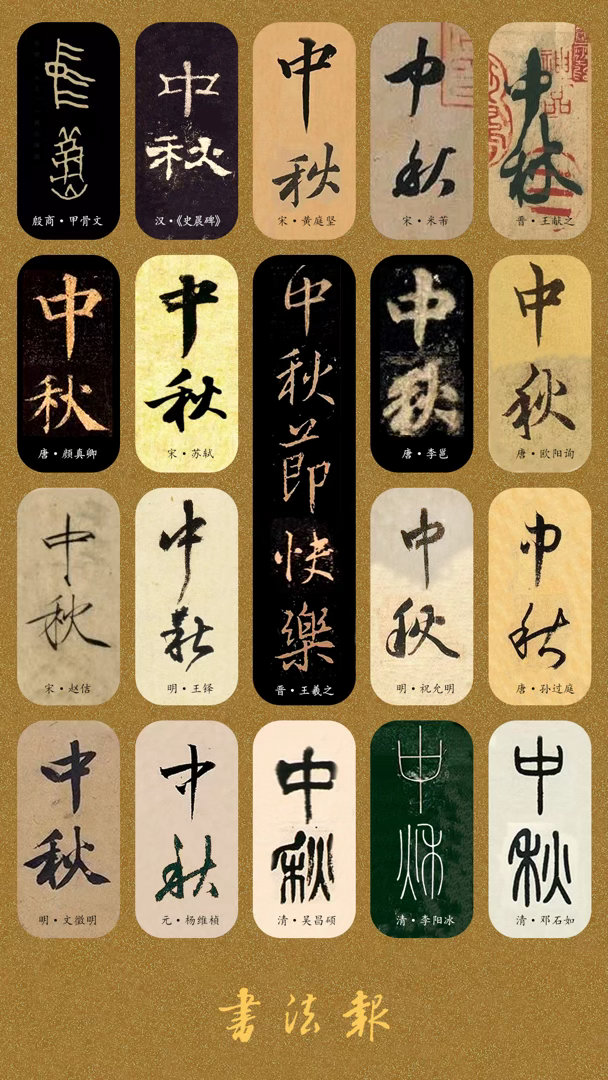 中秋
殷商·甲骨文
中秋
汉·《史晨碑》
中秋
宋·黄庭坚
中秋
宋·米芾
中秋
晋·王献之
中秋
唐·颜真卿
中秋
宋·苏轼
中秋節快樂
晋·王羲之
中秋
唐·李邕
中秋
唐·欧阳询
中秋
宋·赵佶
中秋
明·王铎
中秋
明·祝允明
中秋
唐·孙过庭
中秋
明·文徵明
中秋
元·杨维桢
中秋
清·吴昌硕
中秋
清·李阳冰
中秋
清·邓石如
書法報